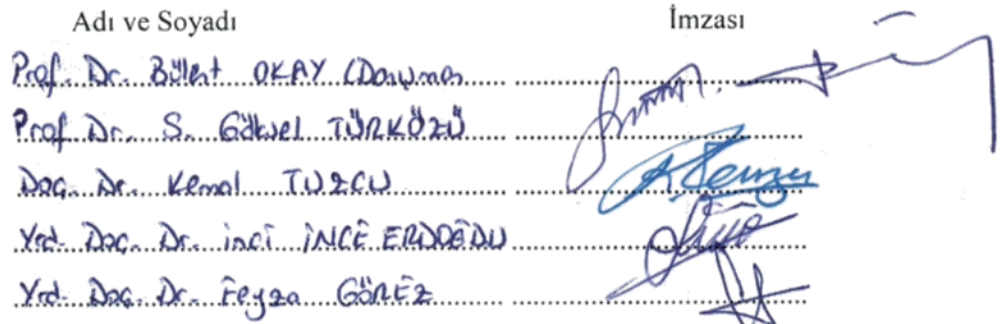 Adı ve Soyadı İmzası
Prof. Dr. Bülent OKAY (Danışman
Prof Dr. S. Göksel TÜRKÖZÜ
Doç. Dr. Kemal TUZCU
Yrd. Doç. Dr. İnci İNCE ERDOĞDU
Yrd. Doç. Dr. Feyza GÖREZ